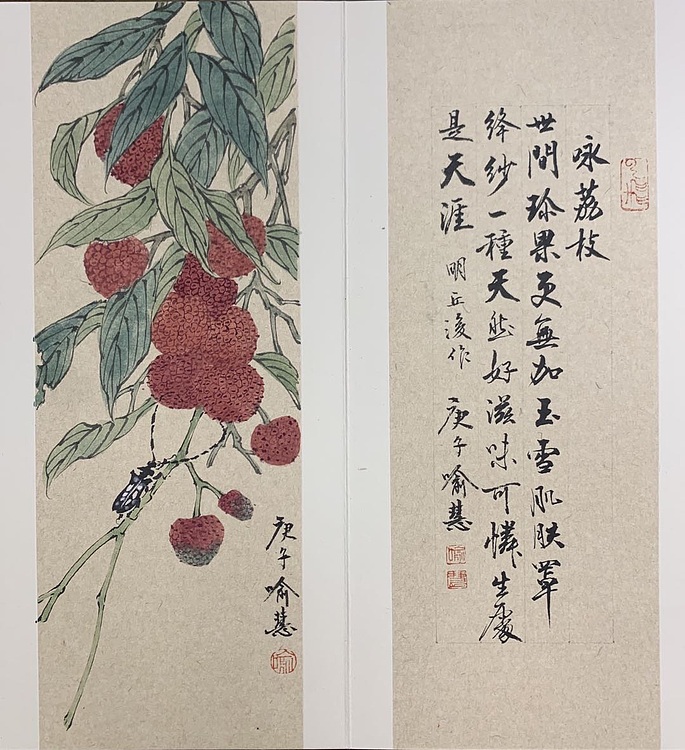 咏荔枝
世間珍果更無加玉雪肌肤罩
絳紗一種天然好滋味可憐生處
是天涯 明丘浚作 庚子喻慧
庚子喻慧